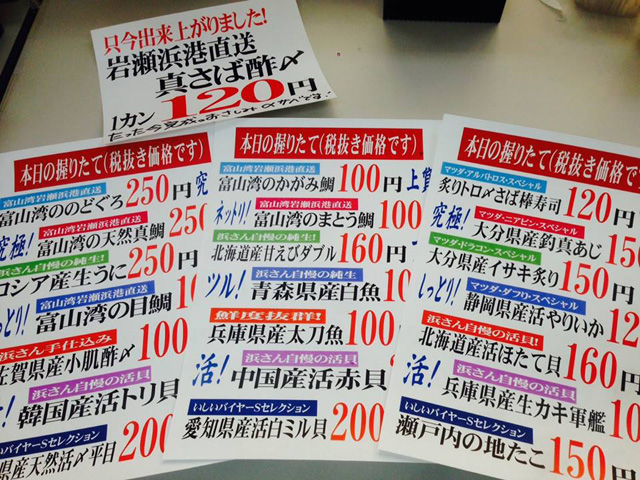 只今出来上がりました!
岩瀬浜港直送
真さば酢〆
1カン120円
本日の握りたて(税抜き価格です)
富山湾岩瀬浜港直送
富山湾ののどぐろ 250円
究極!
富山湾岩瀬浜港直送
富山湾の天然真鯛 250
浜さん自慢の純生!
ロシア産生うに 250円
富山湾岩瀬浜港直送
富山湾の目鯛 100
浜さん手仕込み
佐賀県産小肌酢〆 100
浜さん自慢の活貝
韓国産活トリ貝
いしいバイヤーSセレクション
県産天然活〆平目 200
究
本日の握りたて(税抜き価格です)
富山湾岩瀬浜港直送
富山湾のかがみ鯛 100円
ネットリ!
富山湾岩瀬浜港直送
富山湾のまとう鯛 100
浜さん自慢の純生!
北海道産甘えびダブル 160円
ツル!
浜さん自慢の純生
青森県産白魚 100
鮮度抜群!
兵庫県産太刀魚 100
活!
浜さん自慢の活貝
中国産活赤貝
いしいバイヤーSセレクション
愛知県産活白ミル貝 200
上質
本日の握りたて(税抜き価格です)
マツダ・アルバトロス・スペシャル
炙りトロ〆さば棒寿司 120円
究極!
マツダ・ニアピン・スペシャル
大分県産釣真あじ 150
マツダ・ドラゴン・スペシャル
大分県産イサキ炙り 150円
しっとり!
マツダ・ダフリ・スペシャル
静岡県産活やりいか 12
浜さん自慢の活貝!
北海道産活ほたて貝 160円
活!
浜さん自慢の活貝
兵庫県産生カキ軍艦 10
いしいバイヤーSセレクション
瀬戸内の地たこ 150円